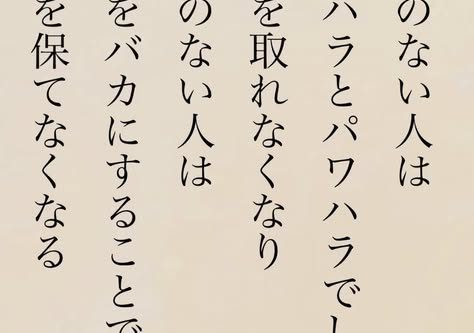 のない人は
ハラとパワハラでし
を取れなくなり
のない人は
をバカにすることで
を保てなくなる